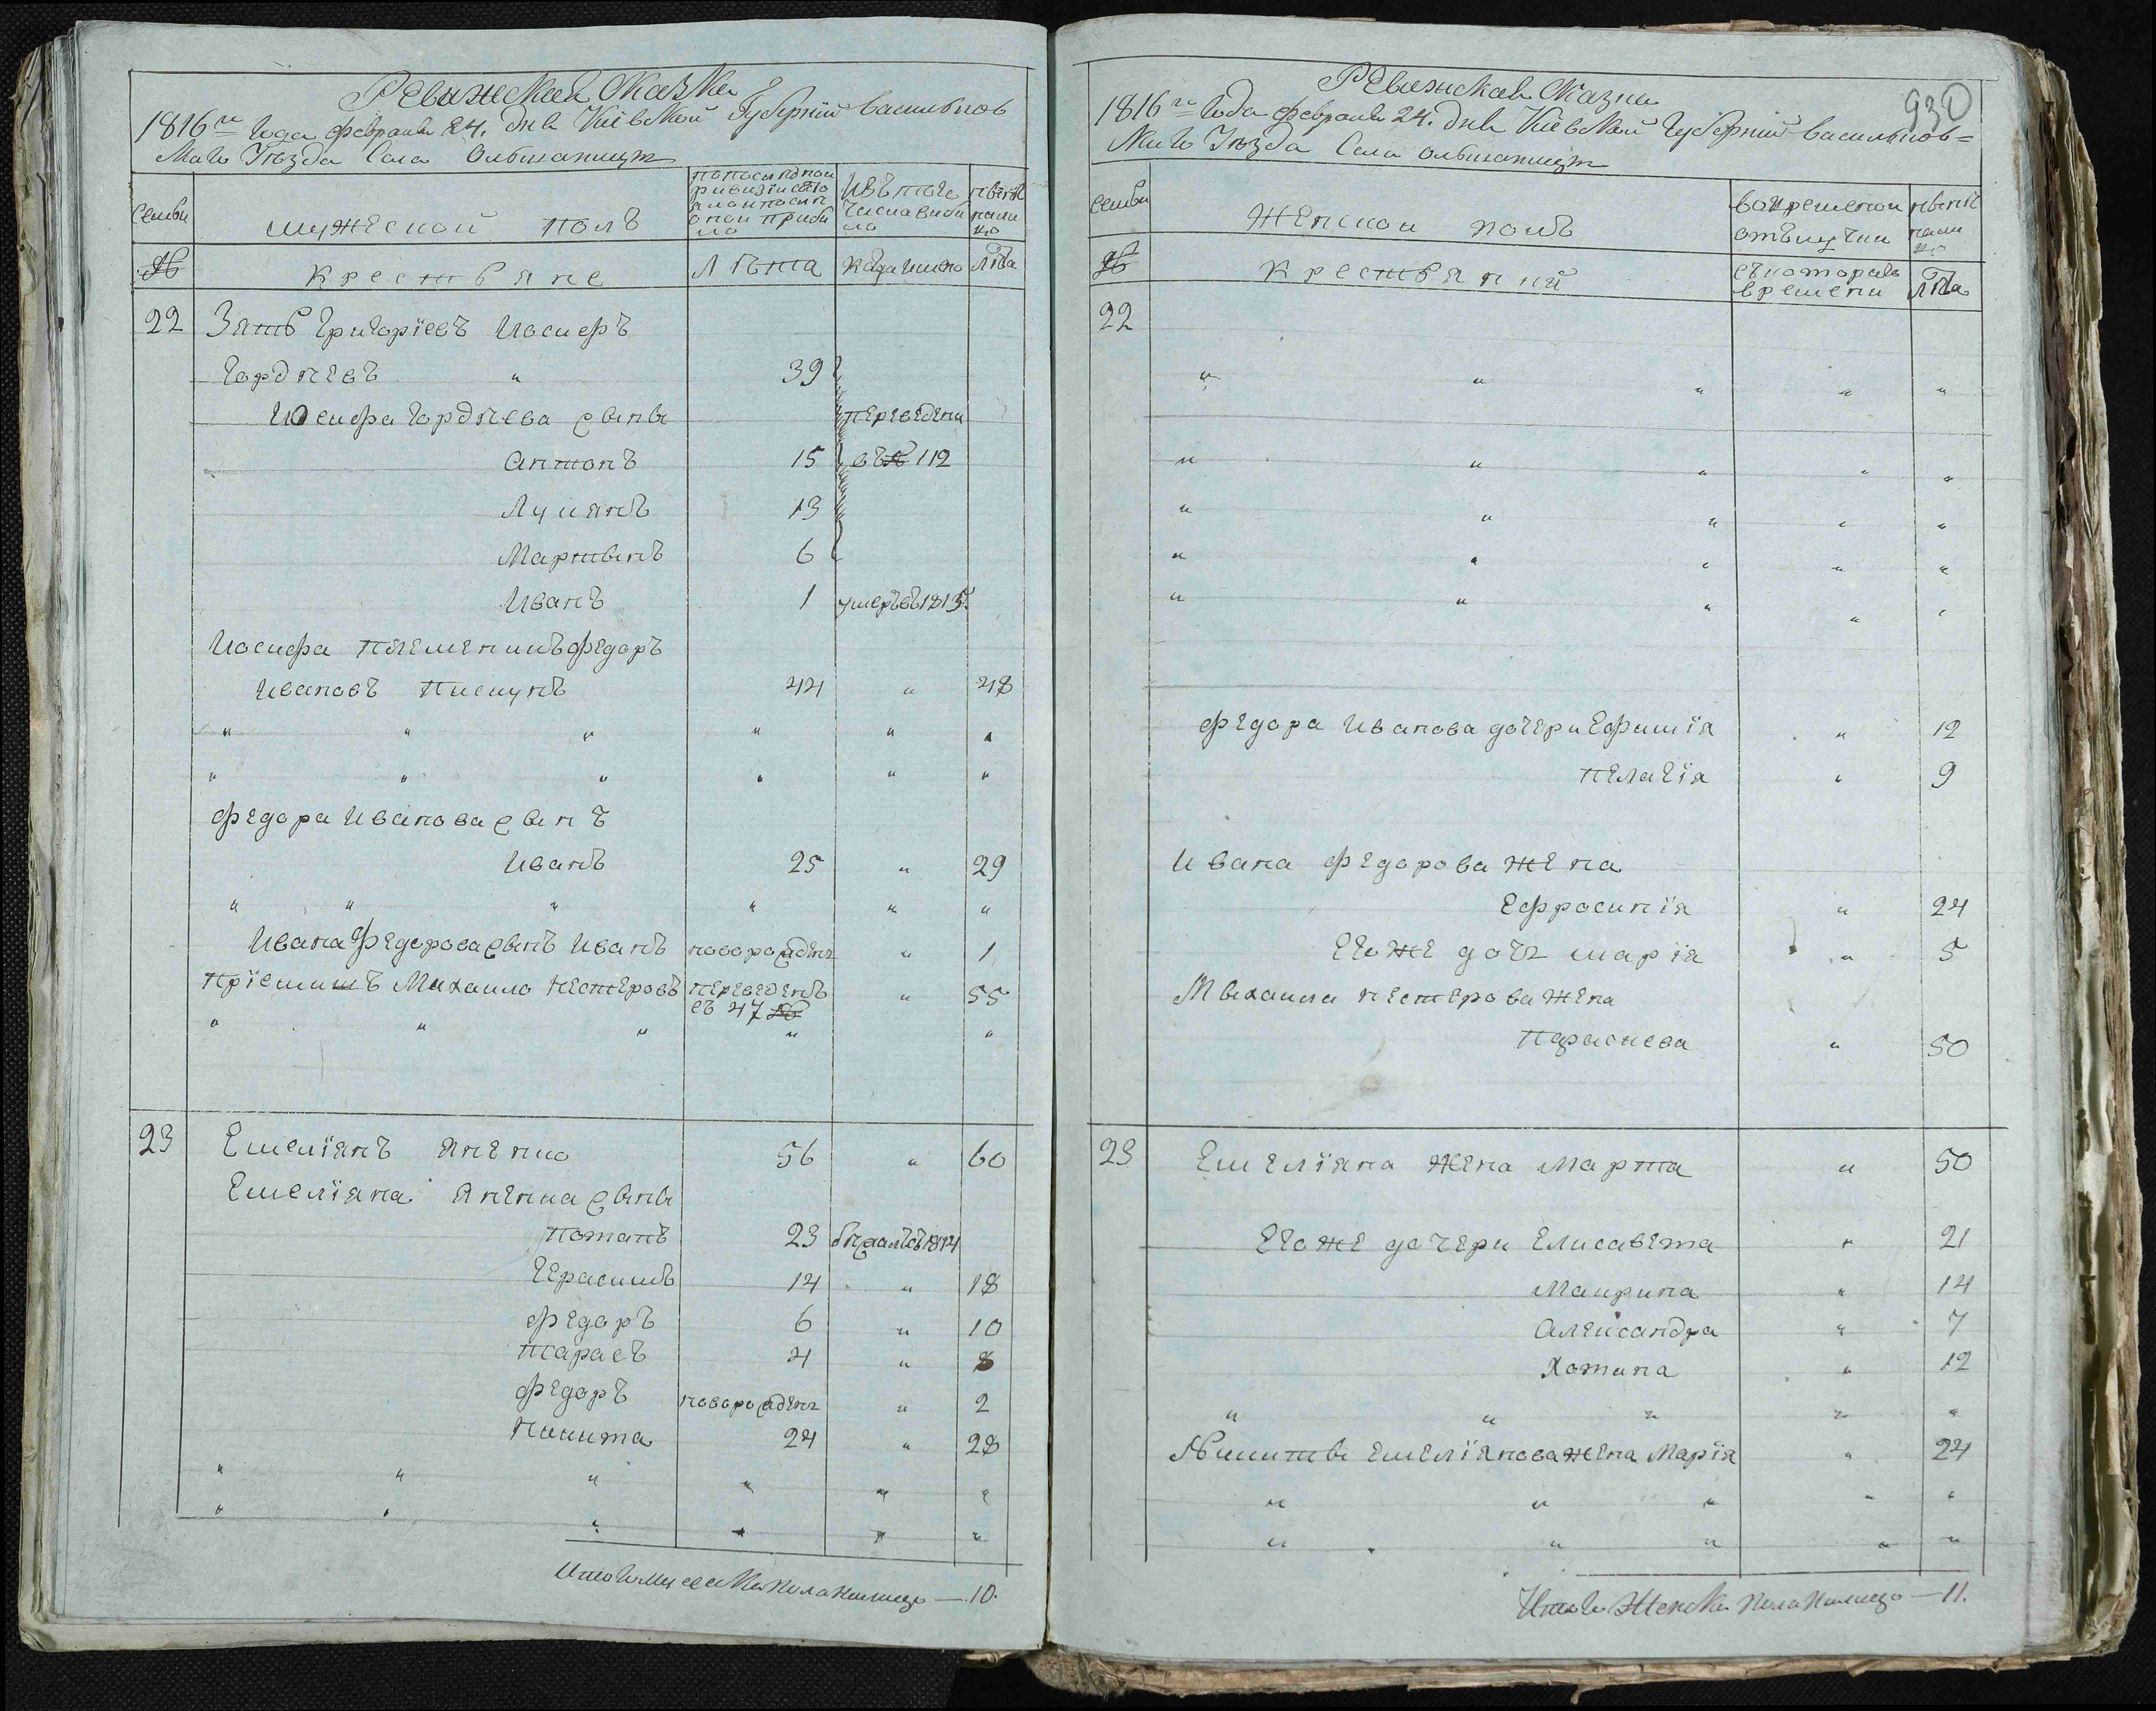 Ревижская Сказка
1816го года февраля 24. дня Киевской Губерніи васильков
скаго Уѣзда Села Ольшаницы
семьи
мужеской полъ
по последной ревизіи состояло и после оной прибыло
Изъ того числа выбыло
ныне налицо
№
крестьяне
Лѣта
когда имено
Лѣта
22 Зять Григоріевъ Иосифъ
Гордѣевъ " 39
Иосифа Гордѣева сыны переведены
Антонъ 15 въ № 112
Лукянъ 13
Мартынъ 6
Иванъ 1 умеръ въ 1815.
Иосифа племеникъ Федоръ
Ивановъ Пискунъ 44 " 48
" " " " " "
" " " " " "
Федора Иванова сынъ
Иванъ 25 " 29
" " " " " "
Ивана Федорова сынъ Иванъ новорожден " 1
Пріемишъ Михаило Нестеровъ переведенъ " 55
съ 47 №
" " " " "
23 Емеліянъ Яненко 56 " 60
Емеліяна Яненка сыны
Потапъ 23 бежалъ въ 1814
Герасимъ 14 " 18
Федоръ 6 " 10
Тарасъ 4 " 8
Федоръ новорожден " 2
Никита 24 " 28
" " " " " "
" " " " " "
Итого мужеска пола налицо — 10.
930
Ревижская Сказка
1816го года февраля 24. дня Киевской Губерніи васильков=
скаго Уѣзда Села ольшаницы
семьи
Женской полъ
во временой отълучки
ныне налицо
№
крестьянкй
съ которого времени
Лѣта
22
" " " " "
" " " " "
" " " " "
" " " " "
" " " " "
Федора Иванова дочери Ефимія " 12
Пелагія " 9
Ивана Федорова жена
Ефросинія " 24
Его же дочь марія " 5
Михаила Нестерова жена
Параскева " 50
23 Емеліяна жена Марта " 50
Его же дочери Елисавета " 21
Маирина " 14
Александра " 7
Хотина " 12
" " " " "
Никиты Емеліянова жена Марія " 24
" " " " "
" " " " "
Итого Женска пола налицо — 11.